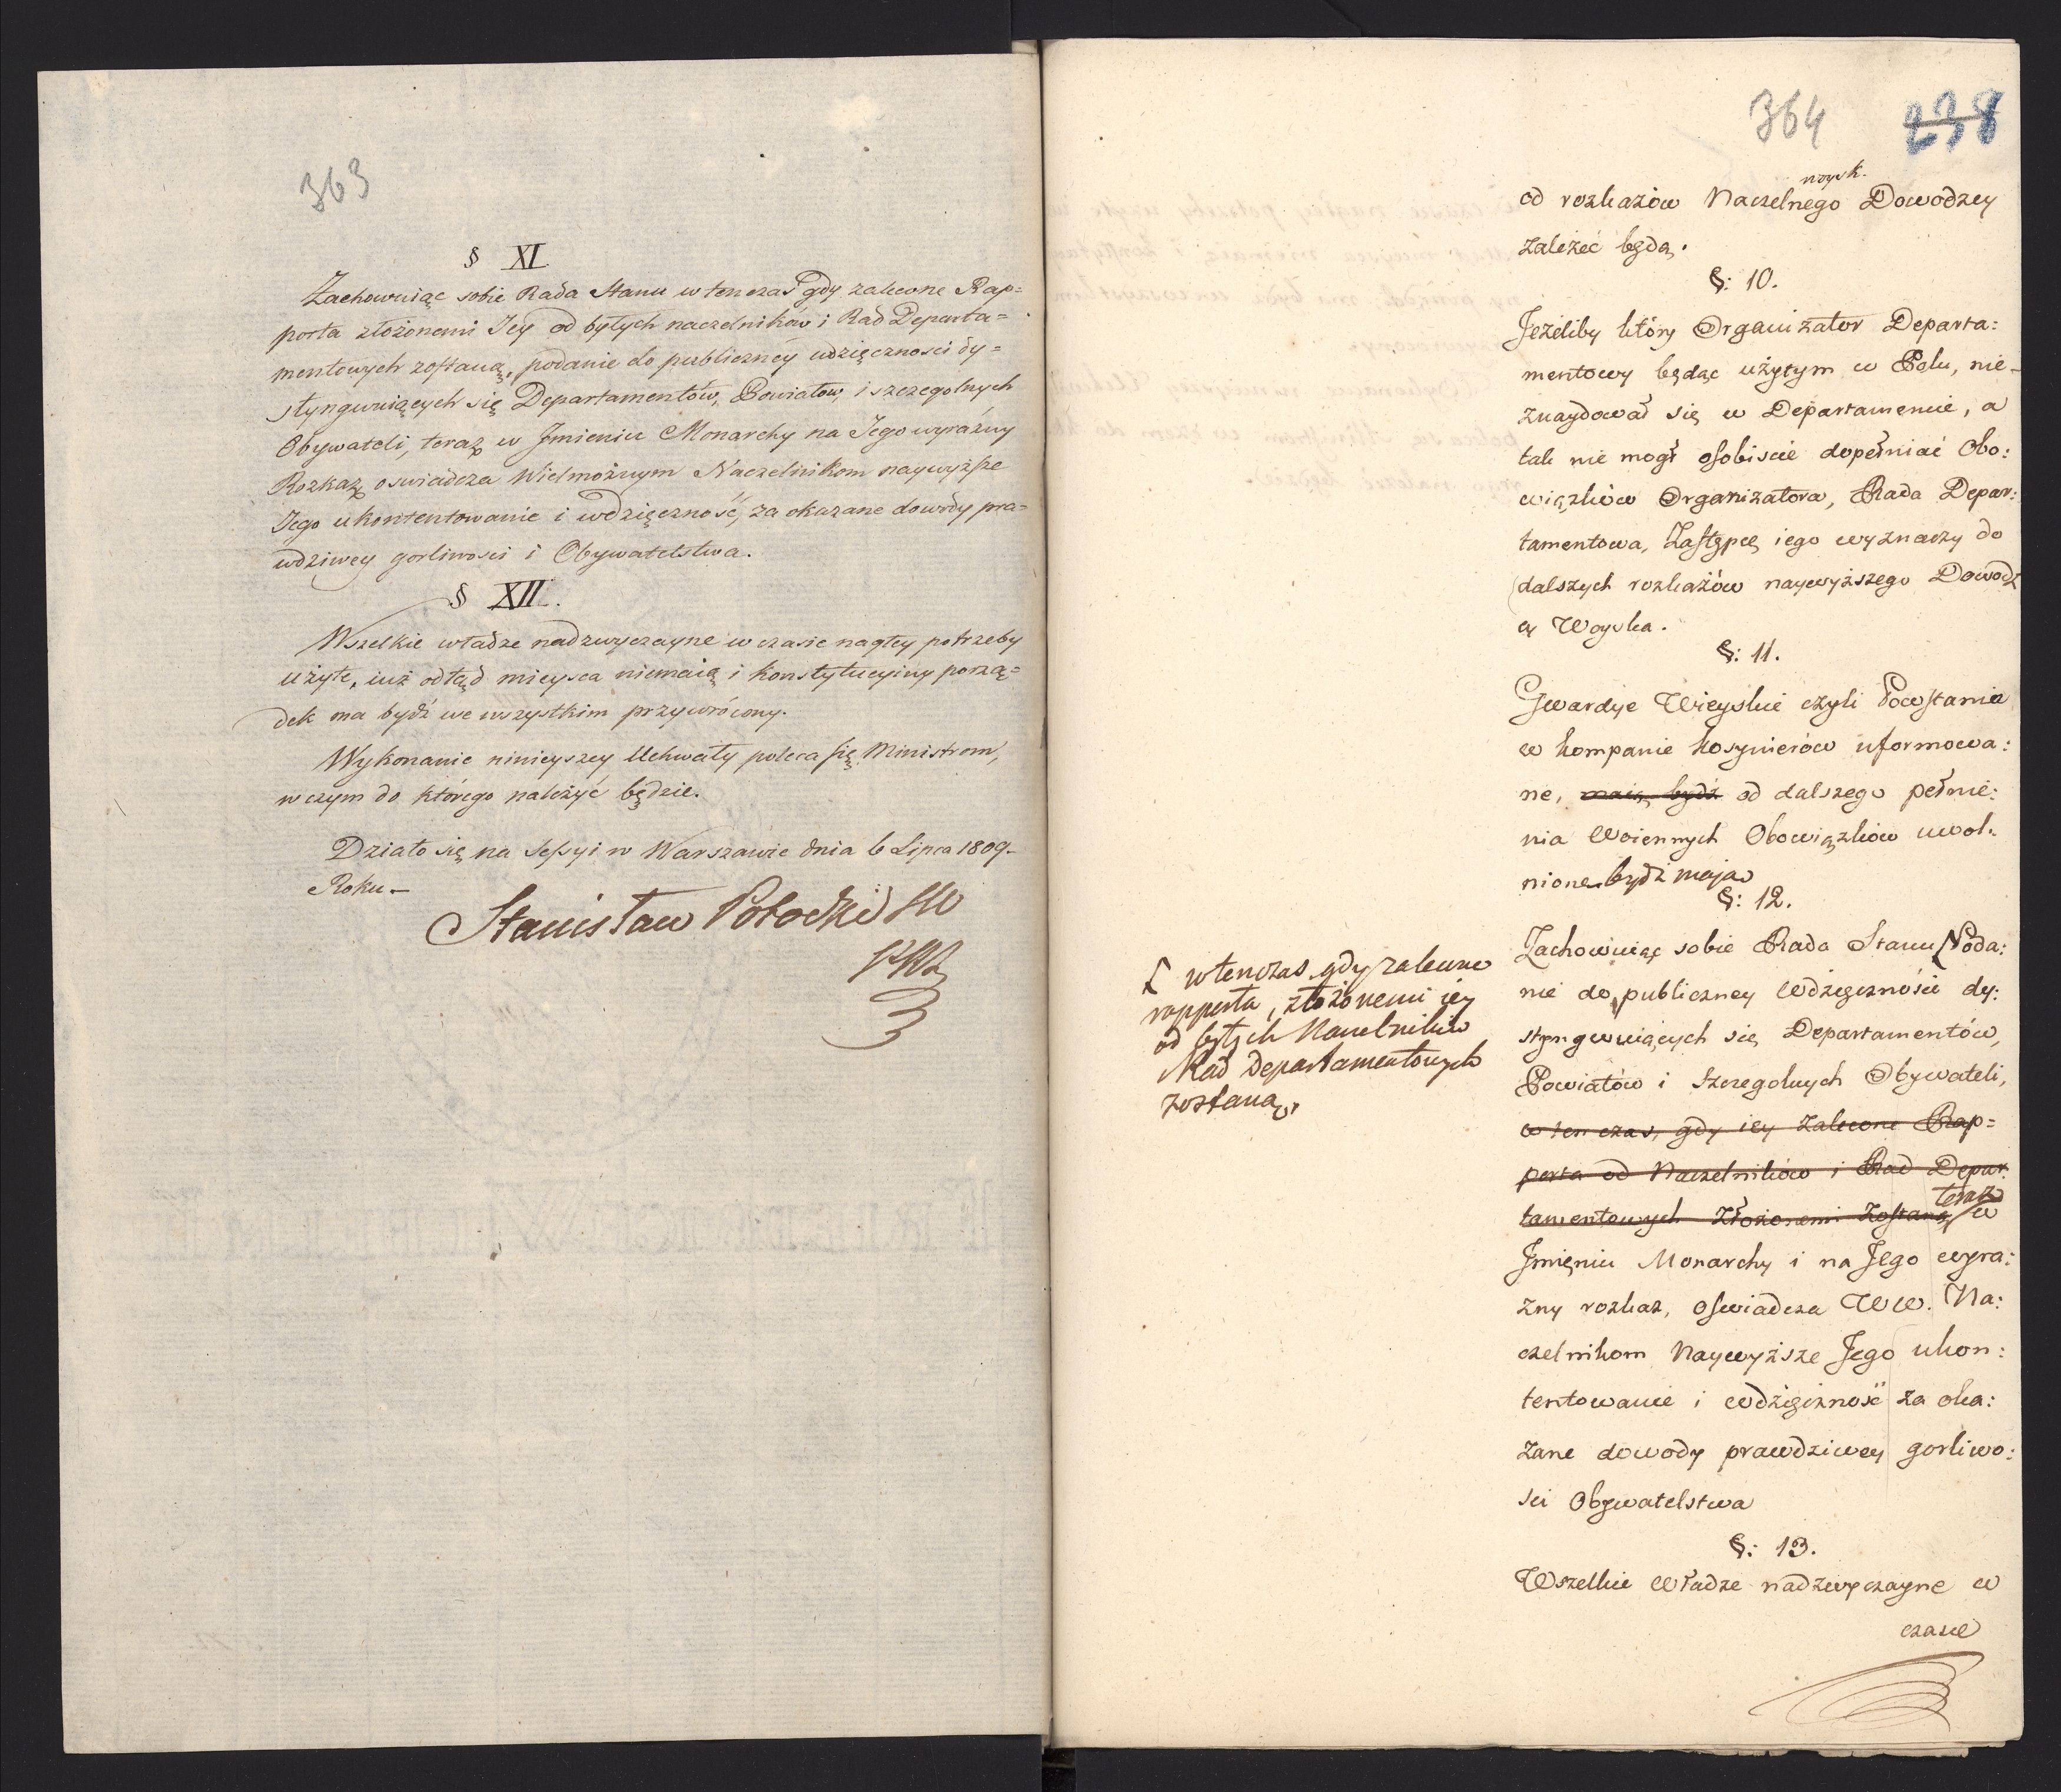 363
§ XI
Zachowuiąc sobie Rada Stanu w ten czas gdy zalecone Rap=
porta złożonemi Jey od byłych naczelników i Rad Departa=
mentowych zostaną, podanie do publiczney wdzięczności dy=
styngwuiących się Departamentów, Powiatów, i szczegolnych
Obywateli, teraz w Jmieniu Monarchy na Jego wyraźny
Rozkaz oswiadcza Wielmożnym Naczelnikom naywyższe
Jego ukontentowanie i wdzięczność, za okazane dowody pra=
wdziwey gorliwości i Obywatelstwa.
§ XII.
Wszelkie władze nadzwyczayne w czasie nagłey potrzeby
użyte, iuż odtąd mieysca niemaią i konstytucyiny porzą=
dek ma bydź we wszystkim przywrócony.
Wykonanie ninieyszey Uchwały poleca się Ministrom,
w czym do którego należyć będzie.
Działo się na Sessyi w Warszawie dnia 6 Lipca 1809-
Roku -
Stanisław Potocki
364 238
woysk.
od rozkazów Naczelnego Dowodzcy
zależeć będą.
§: 10.
Jeżeliby który Organizator Departa:
mentowy będąc użytym w Polu, nie-
znaydował się w Departamencie, a
tak nie mogł osobiscie dopełniać Obo:
wiązków Organizatora, Rada Depar:
tamentowa, Zastępcę iego wyznaczy do
dalszych rozkazów naywyższego Dowodz
cy Woyska.
§: 11.
Gwardye Wieyskie czyli Powstania
w kompanie kosynierów uformowa:
ne, maią bydź od dalszego pełnie:
nia Woiennych Obowiązków uwol:
nione bydź mają
§: 12.
Zachowuiąc sobie Rada Stanu [Poda:
nie do publiczney Wdzięczności dy:
styngwuiących się Departamentów,
Powiatów i Szczegolnych Obywateli,
w ten czas, gdy iey Zalecone Rap=
porta od Naczelników i Rad Depar
tamentowych Złożonemi Zostaną, teraz w
Jmieniu Monarchy i na Jego wyra:
zny rozkaz, Oswiadcza WW. Na:
czelnikom Naywyższe Jego ukon:
tentowanie i wdzięczność za oka:
zane dowody prawdziwey gorliwo:
sci Obywatelstwa
§: 13.
Wszelkie Władze nadzwyczayne w
czasie
[ wtenczas gdy zalecone
rapporta, złożonemi iey
od byłych Naczelników
i Rad Departamentowych
zostaną,